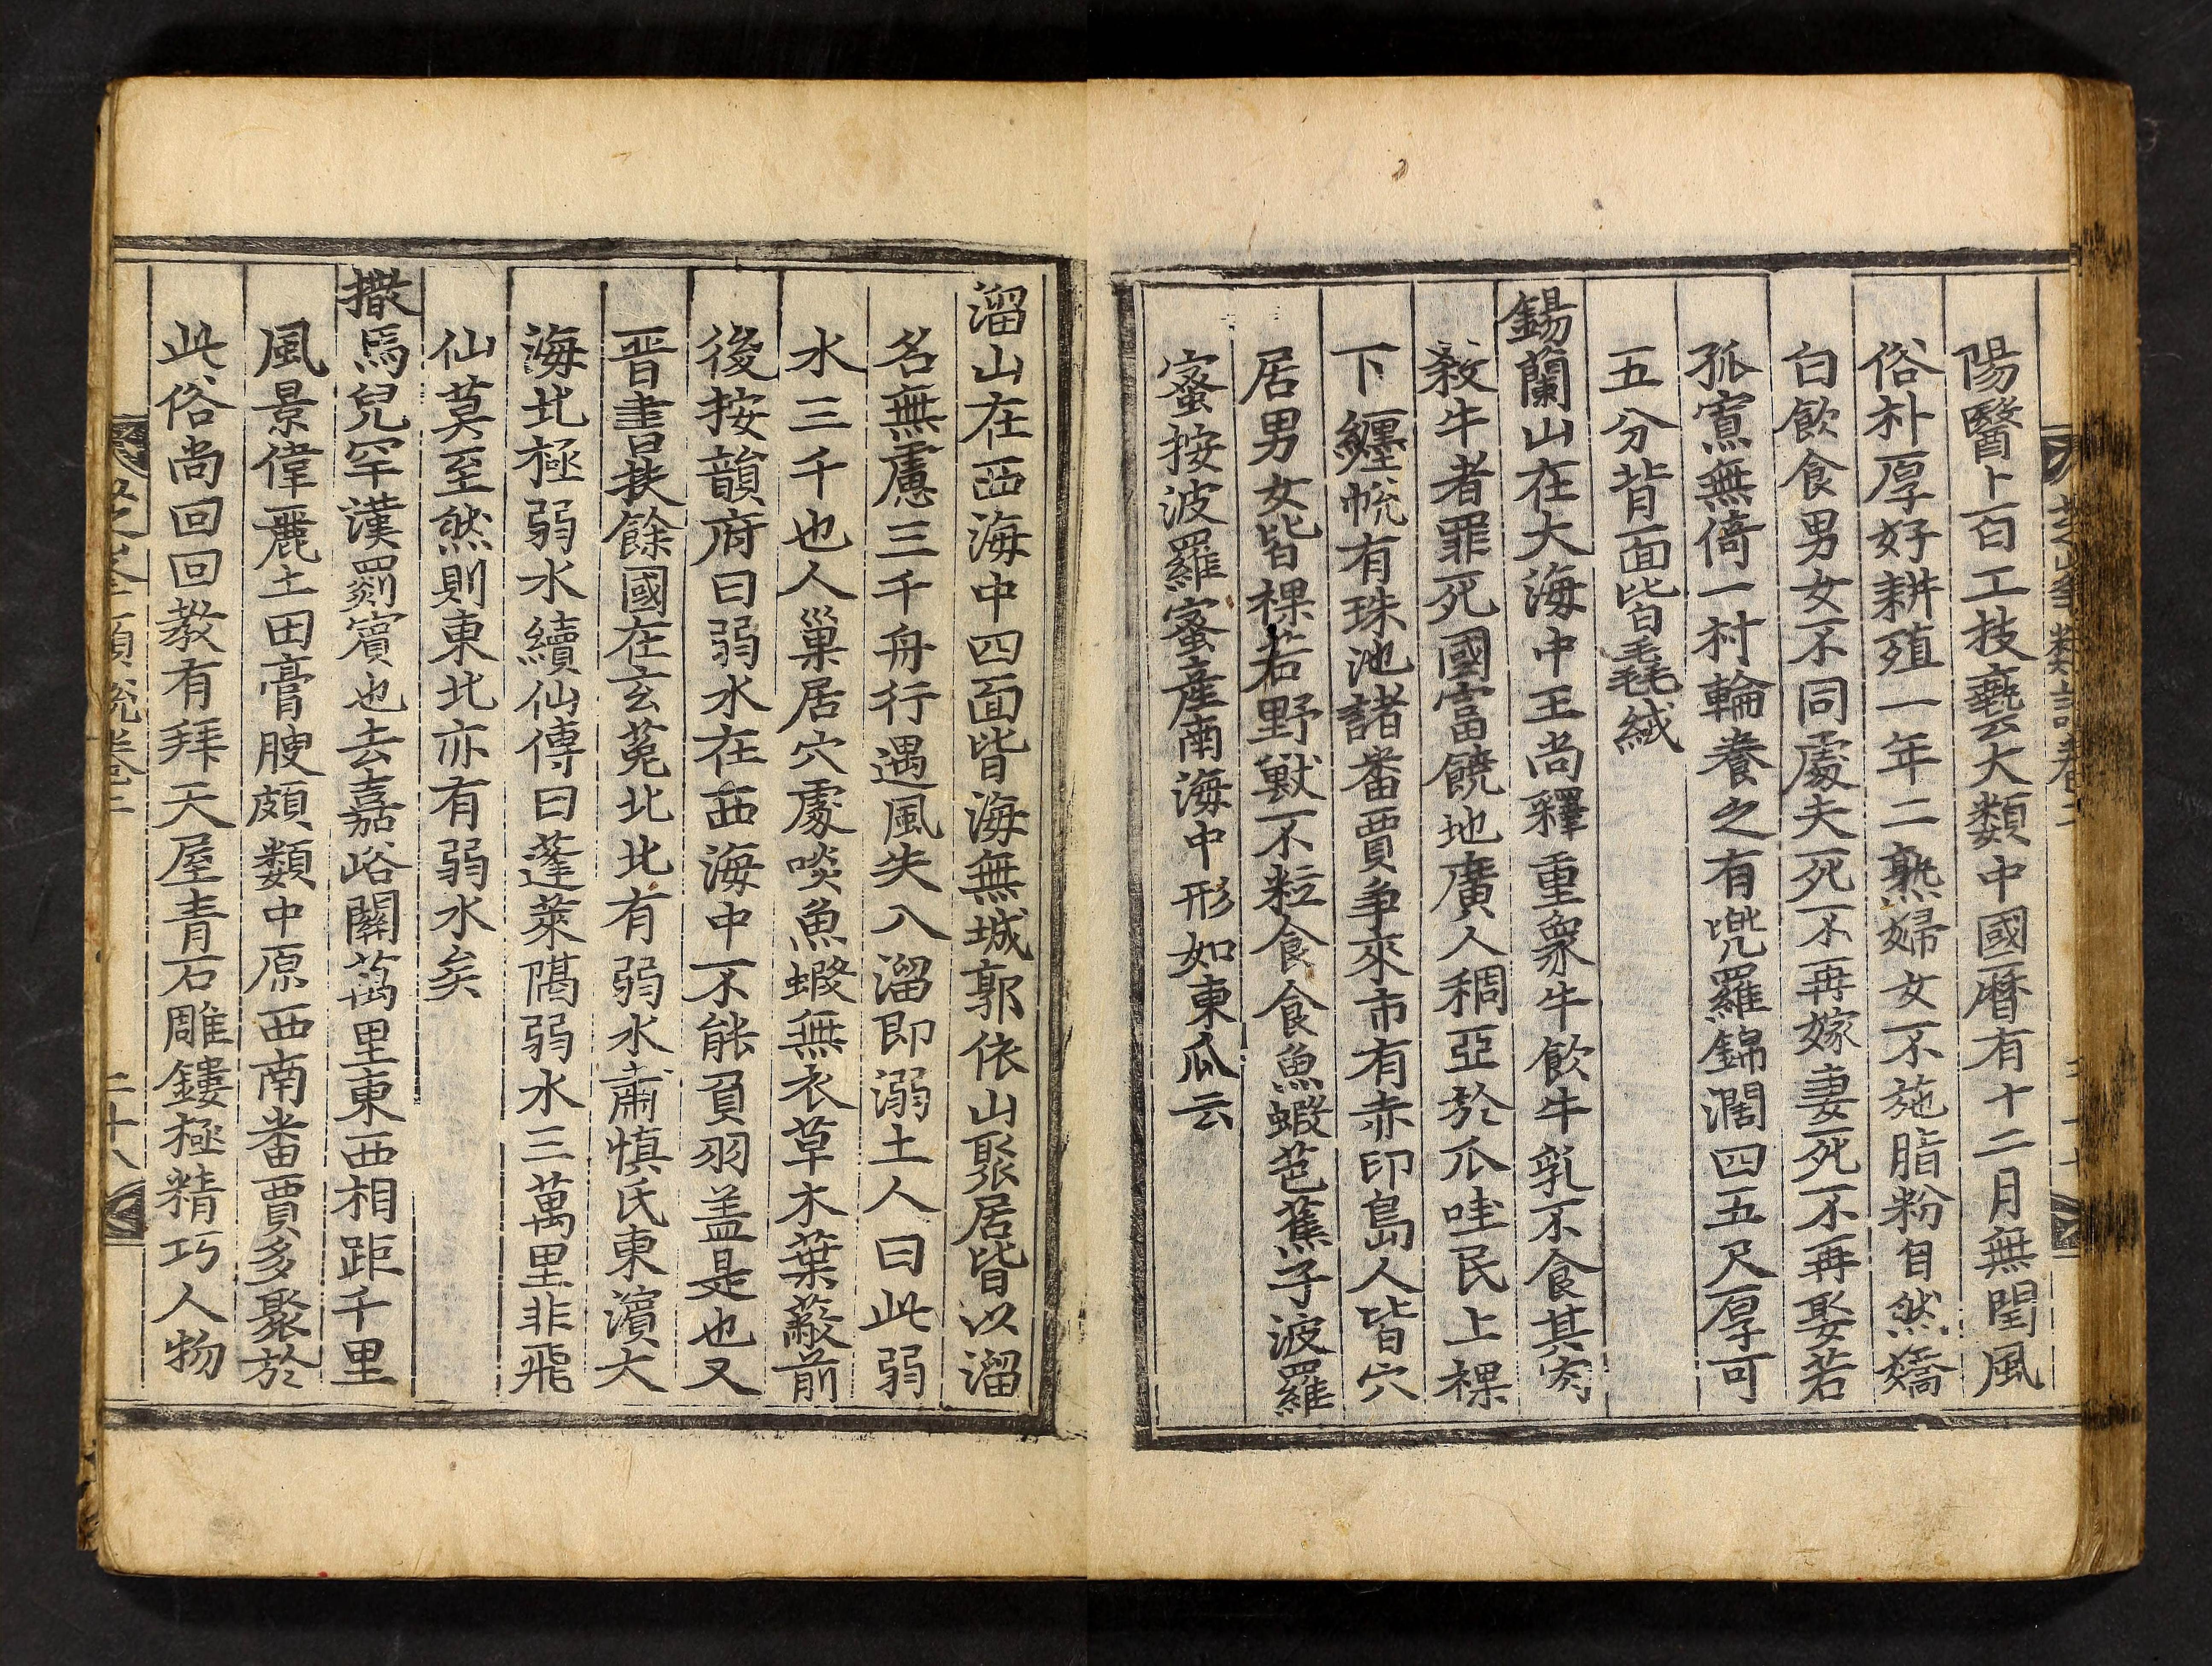 陽醫卜百工技藝大類中國曆有十二月無閏風
俗朴厚好耕殖一年二熟婦女不施脂粉自然嬌
白飮食男女不同處夫死不再嫁妻死不再娶若
孤寡無倚一村輪養之有兜羅錦濶四五尺厚可
五分背面皆毳絨
錫蘭山在大海中王尚釋重象牛飮牛乳不食其肉
殺牛者罪死國富饒地廣人稠亞於爪哇民上裸
下纏帨有珠池諸番賈爭來市有赤卬島人皆穴
居男女皆裸若野獸不粒食食魚蝦芭蕉子波羅
蜜按波羅蜜産南海中形如東瓜云
溜山在西海中四面皆海無城郭依山聚居皆以溜
名無慮三千舟行遇風失入溜即溺土人曰此弱
水三千也人巢居穴處啖魚蝦無衣草木葉蔽前
後按韻府曰弱水在西海中不能負羽盖是也又
晋書扶餘國在玄菟北北有弱水肅愼氏東濵大
海北極弱水續仙傳曰蓬萊隔弱水三萬里非飛
仙莫至然則東北亦有弱水矣
撒馬兒罕漢罽賓也去嘉峪關萬里東西相距千里
風景偉麗土田膏腴頗類中原西南番賈多聚於
此俗尚回回教有拜天屋青石雕鏤極精巧人物
芝峯類說卷二
二十八